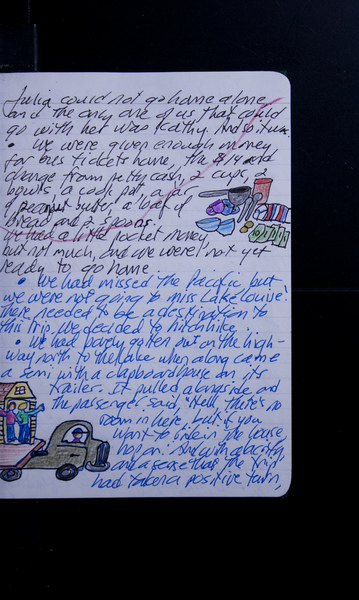 Julia could not go home alone
and the only one of us that could
go with her was Kathy. And so it was.
• We were given enough money
for bus tickets home, the $14 and
change from petty cash, 2 cups, 2
bowls, a cook pot, a jar
of peanut butter, a loaf of
bread and 2 spoons.
We had a little pocket money,
but not much, and we were not yet
ready to go home.
• We had missed the Pacific, but
we were not going to miss Lake Louise!
There needed to be a destination to
this trip. We decided to hitchhike.
• We had barely gotten out on the high-
way north to the lake when along came
a semi with a clapboard house on its
trailer. It pulled alongside and
the passenger said, "Hell, there's no
room in here, but if you
want to ride in the house,
hop on." And with alacrity,
and a sense that the trip
had taken a positive turn,